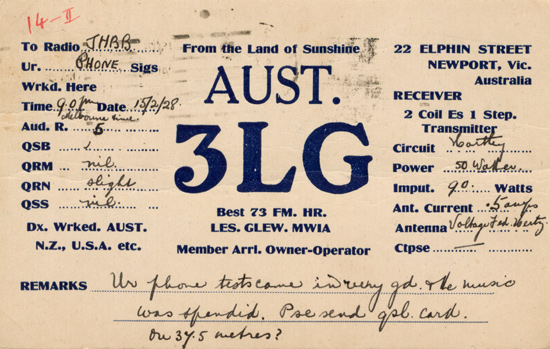 14-II
To Radio JHBB
Ur. PHONE Sigs
Wrkd. Here
Time 9.0 pm Date 15/2/28
Melbourne time
Aud. R. 5
QSB
QRM nil.
QRN slight
QSS nil.
Dx. Wrked. AUST.
N.Z., U.S.A. etc.
From the Land of Sunshine
AUST.
3LG
Best 73 FM. HR.
LES. GLEW. MWIA
Member Arrl. Owner-Operator
22 ELPHIN STREET
NEWPORT, Vic.
Australia
RECEIVER
2 Coil Es 1 Step.
Transmitter
Circuit Hartley
Power 50 Watter
Imput. 90. Watts
Ant. Current .5 amps
Antenna Voltage Fed. Hertz
Ctpse —
REMARKS Ur phone tests came in very gd. & the music
was spendid. Pse send qsl. card.
On 37.5 metres?